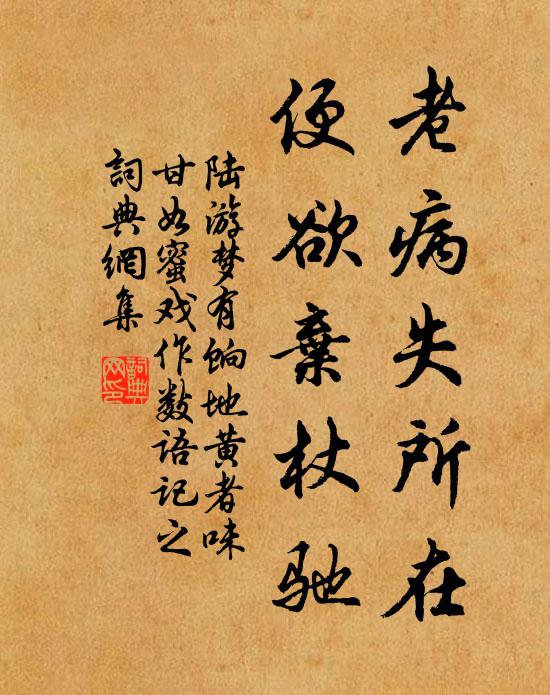 老病失所在
便欲棄杖驰
陆游梦有饷地黄者味
甘如蜜戏作数语记之
詞典網集
詞典
网印